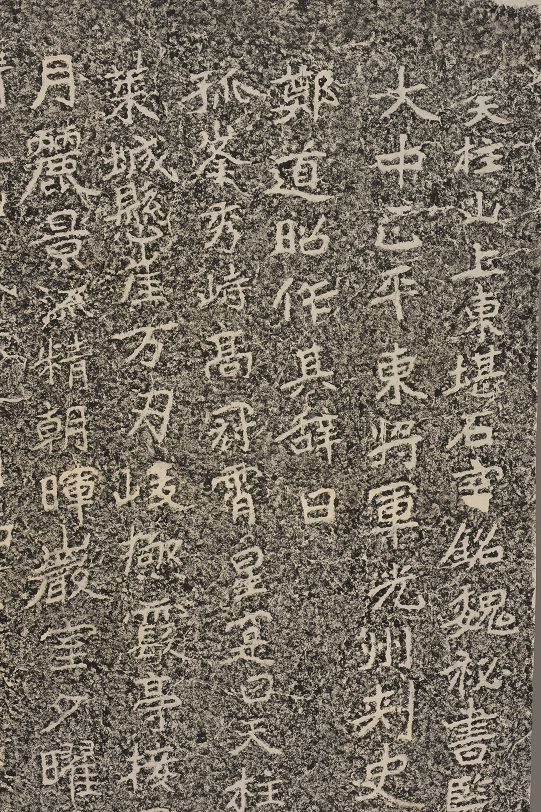 天柱山上東堪石室銘魏祕書監
大中正平東將軍光州刺史
鄭道昭作其辞曰
孤峯秀峙高冠霄星寔曰天柱
萊城懸崖万刃峻極霞亭接
月麗景流精朝暉巖室夕曜